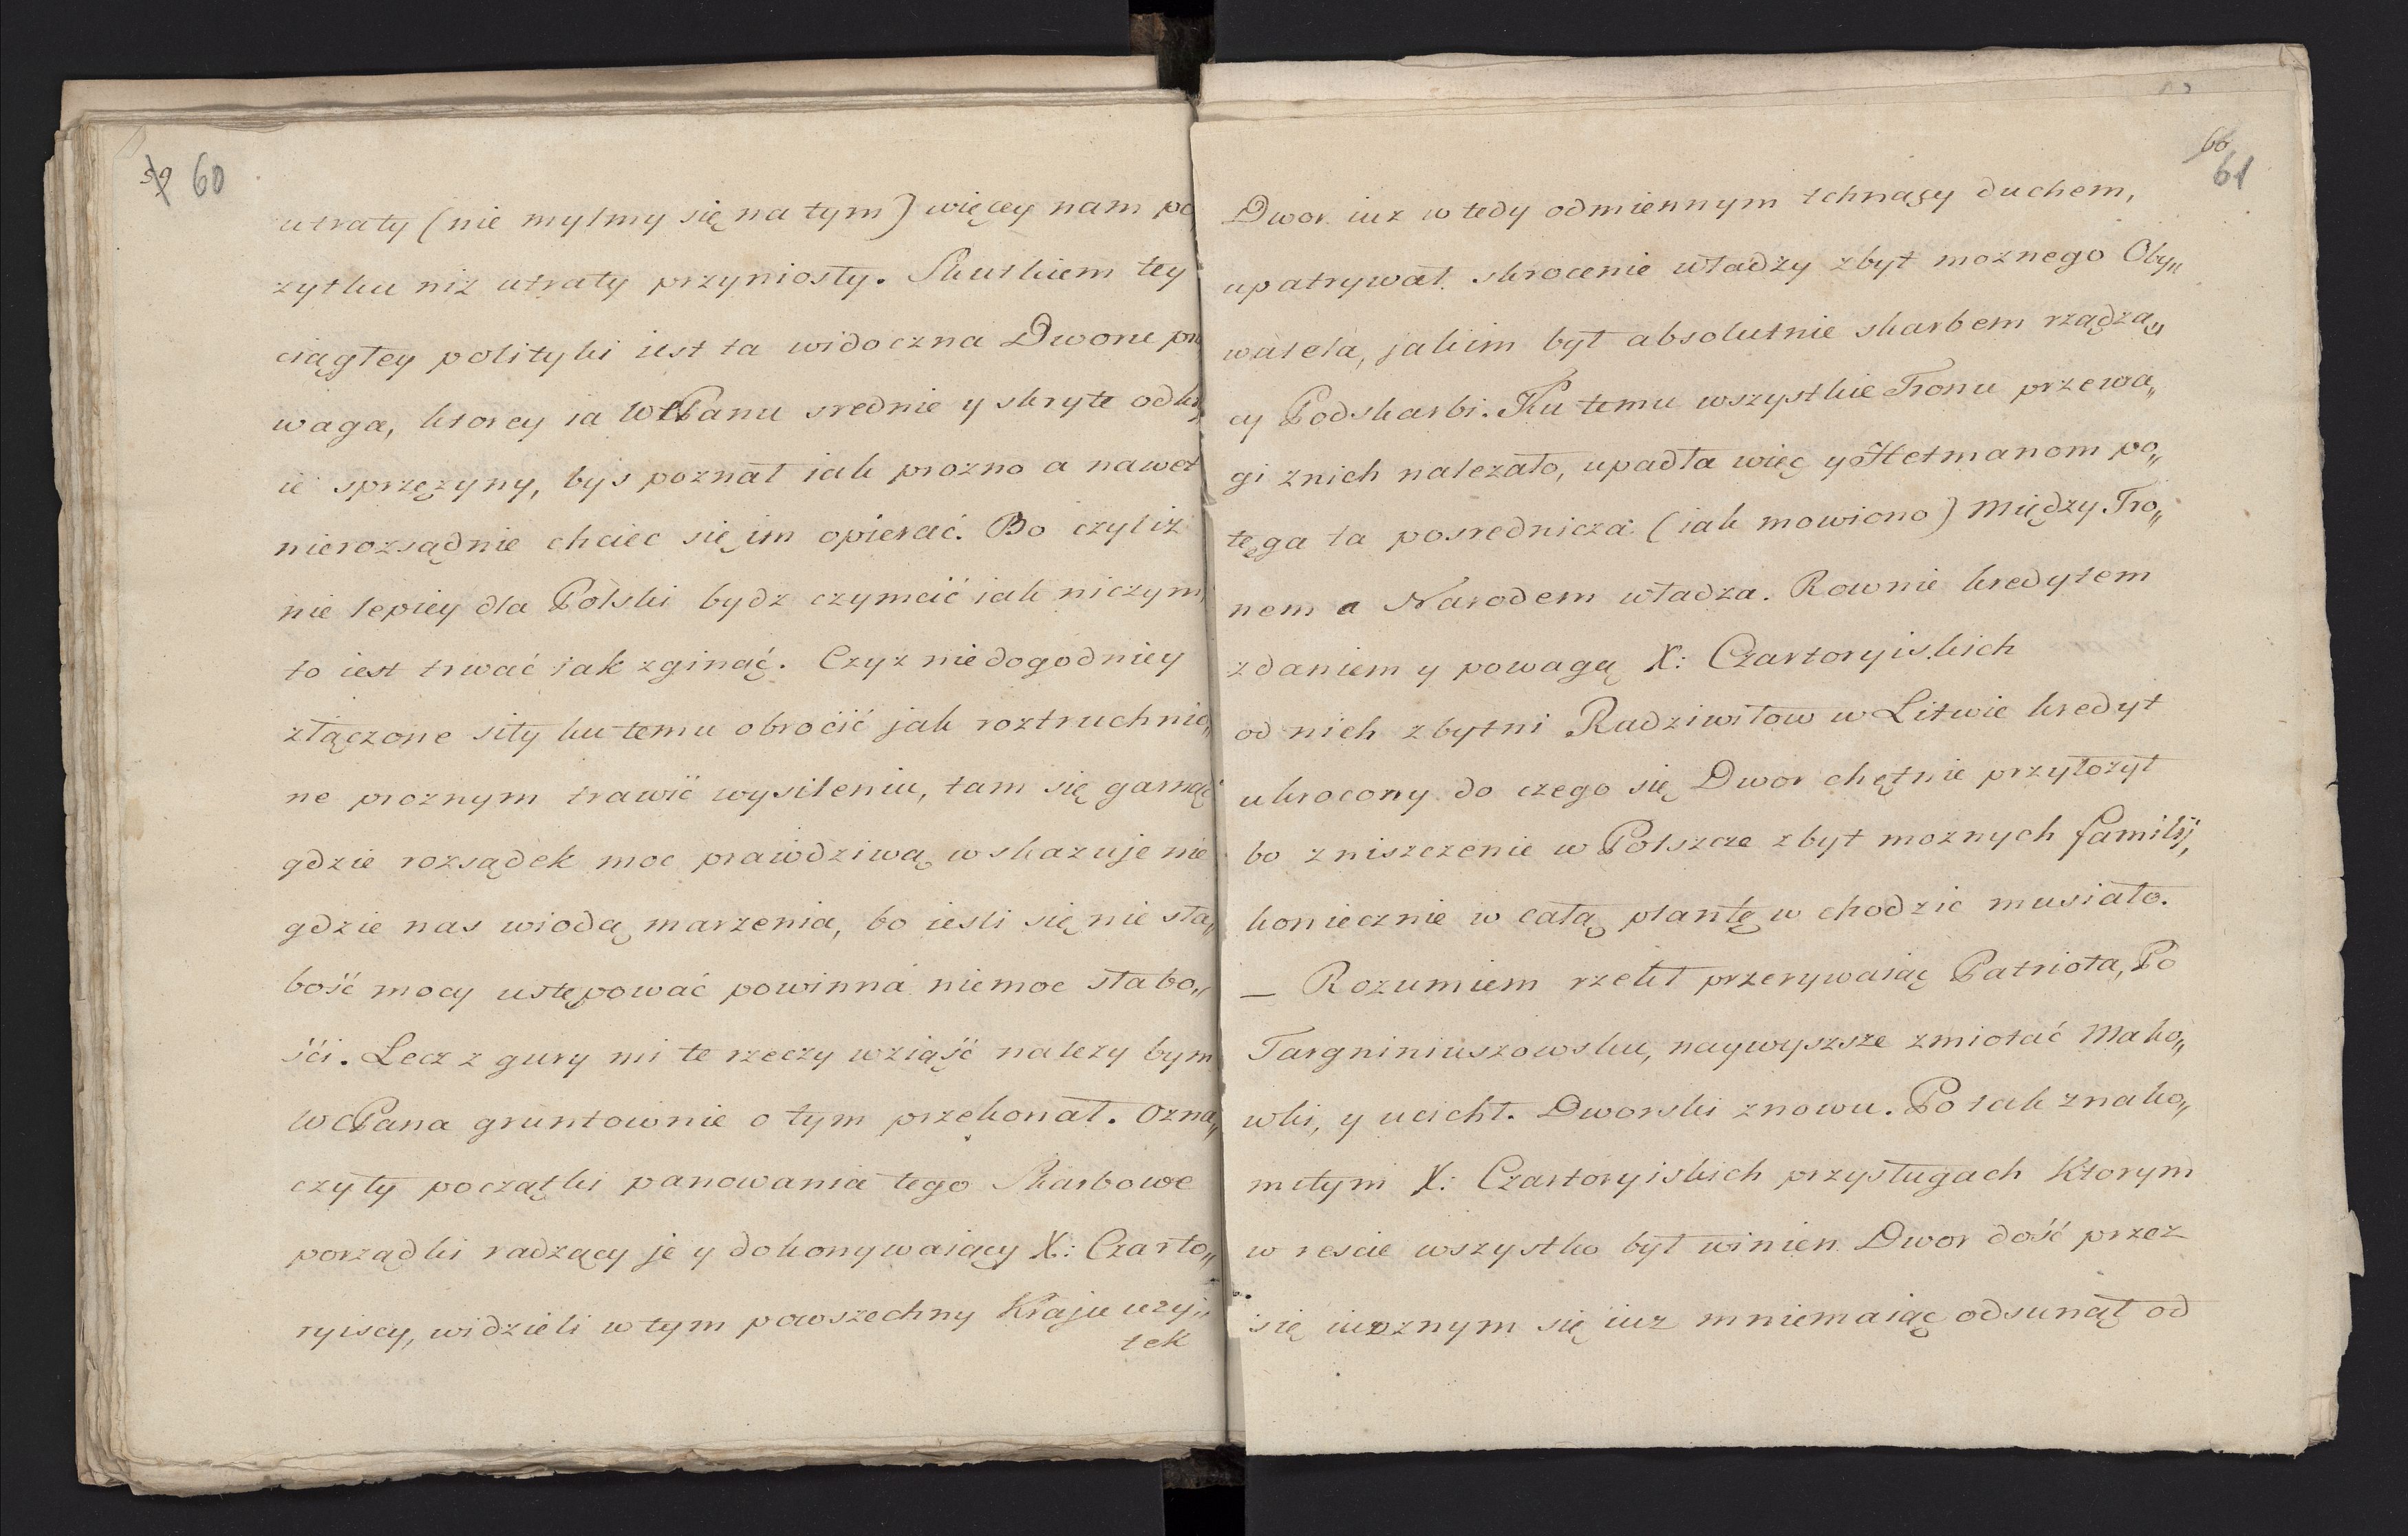 59 60
utraty (nie mylmy się na tym) więcey nam po
zytku niz utraty przyniosły. Skutkiem tey
ciągłey polityki iest ta widoczna Dworu prze
waga, ktorey ia WCPanu srednie y skryte odkry
ie sprzężyny, byś poznał iak prozno a nawet
nierozsądnie chcieć się im opierać. Bo czyliż
nie lepiey dla Polski bydz czymcić iak niczym,
to iest trwać jak zginąć. Czyz niedogodniey
złączone siły ku temu obroćić jak roztruchnio„
ne proznym trawić wysileniu, tam się garnąć
gdzie rozsądek moc prawdziwą wskazuje nie
gdzie nas wiodą marzenia, bo iesli się nie sła„
bość mocy ustępować powinna niemoc słabo„
śći. Lecz z gury mi te rzeczy wziąść nalezy bym
WCPana gruntownie o tym przekonał. Ozna„
czyły początki panowania tego Skarbowe
porządki radzący je y dokonywaiący X: Czarto„
ryiscy, widzieli w tym powszechny Kraju uzy„
tek
60 61
Dwor iuz wtedy odmiennym tchnący duchem,
upatrywał skrocenie władzy zbyt moznego Oby„
watela, jakim był absolutnie skarbem rządzą„
cy Podskarbi. Ku temu wszystkie Tronu przewa„
gi znich nalezało, upadła więc y Hetmanom po„
tęga ta posrednicza (iak mowiono) Między Tro„
nem a Narodem władza. Rownie kredytem
zdaniem y powagą X: Czartoryiskich
od nich zbytni Radziwiłow w Litwie kredyt
ukrocony do czego się Dwor chętnie przyłozył
bo zniszczenie w Polszcze zbyt moznych familij,
koniecznie w całą plantę wchodzic musiało.
_ Rozumiem rzekł przerywaiąc Patriota, Po
Targniniuszowsku, naywyszsze zmiotać Mako„
wki, y ucichł. Dworski znowu. Po tak znako„
mitym X: Czartoryiskich przysługach Ktorym
w rescie wszystko był winien Dwor dość przez
się iuz znym się iuz mniemaiąc odsunął od